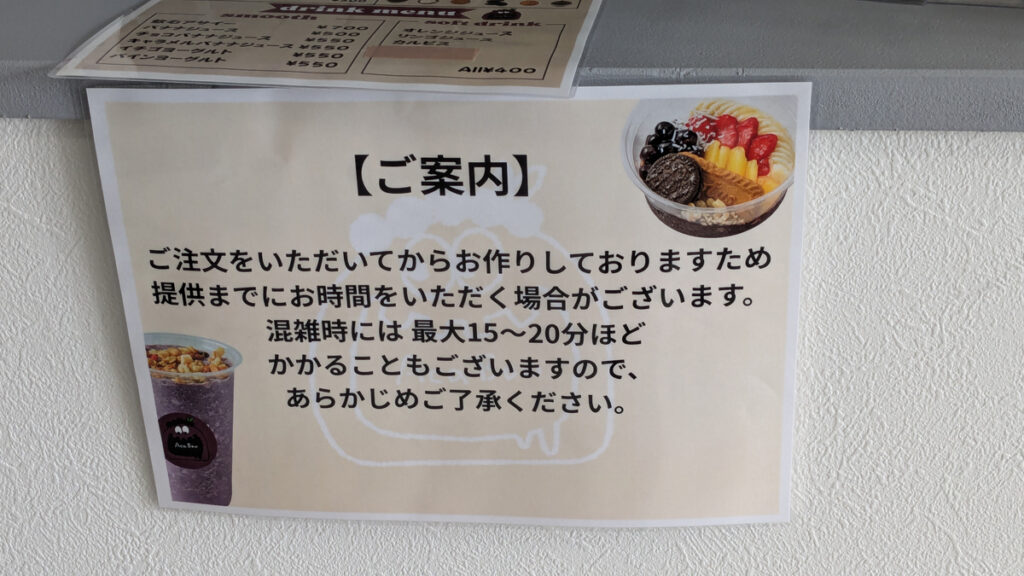 drink menu
smooth
soft drink
飲むアサイー
バナナジュース ¥500
チョコバナナジュース ¥550
キャラメルバナナジュース ¥550
イチゴヨーグルト ¥550
パインヨーグルト ¥550
オレンジジュース
カルピス
All¥400
【ご案内】
ご注文をいただいてからお作りしておりますため
提供までにお時間をいただく場合がございます。
混雑時には 最大15〜20分ほど
かかることもございますので、
あらかじめご了承ください。